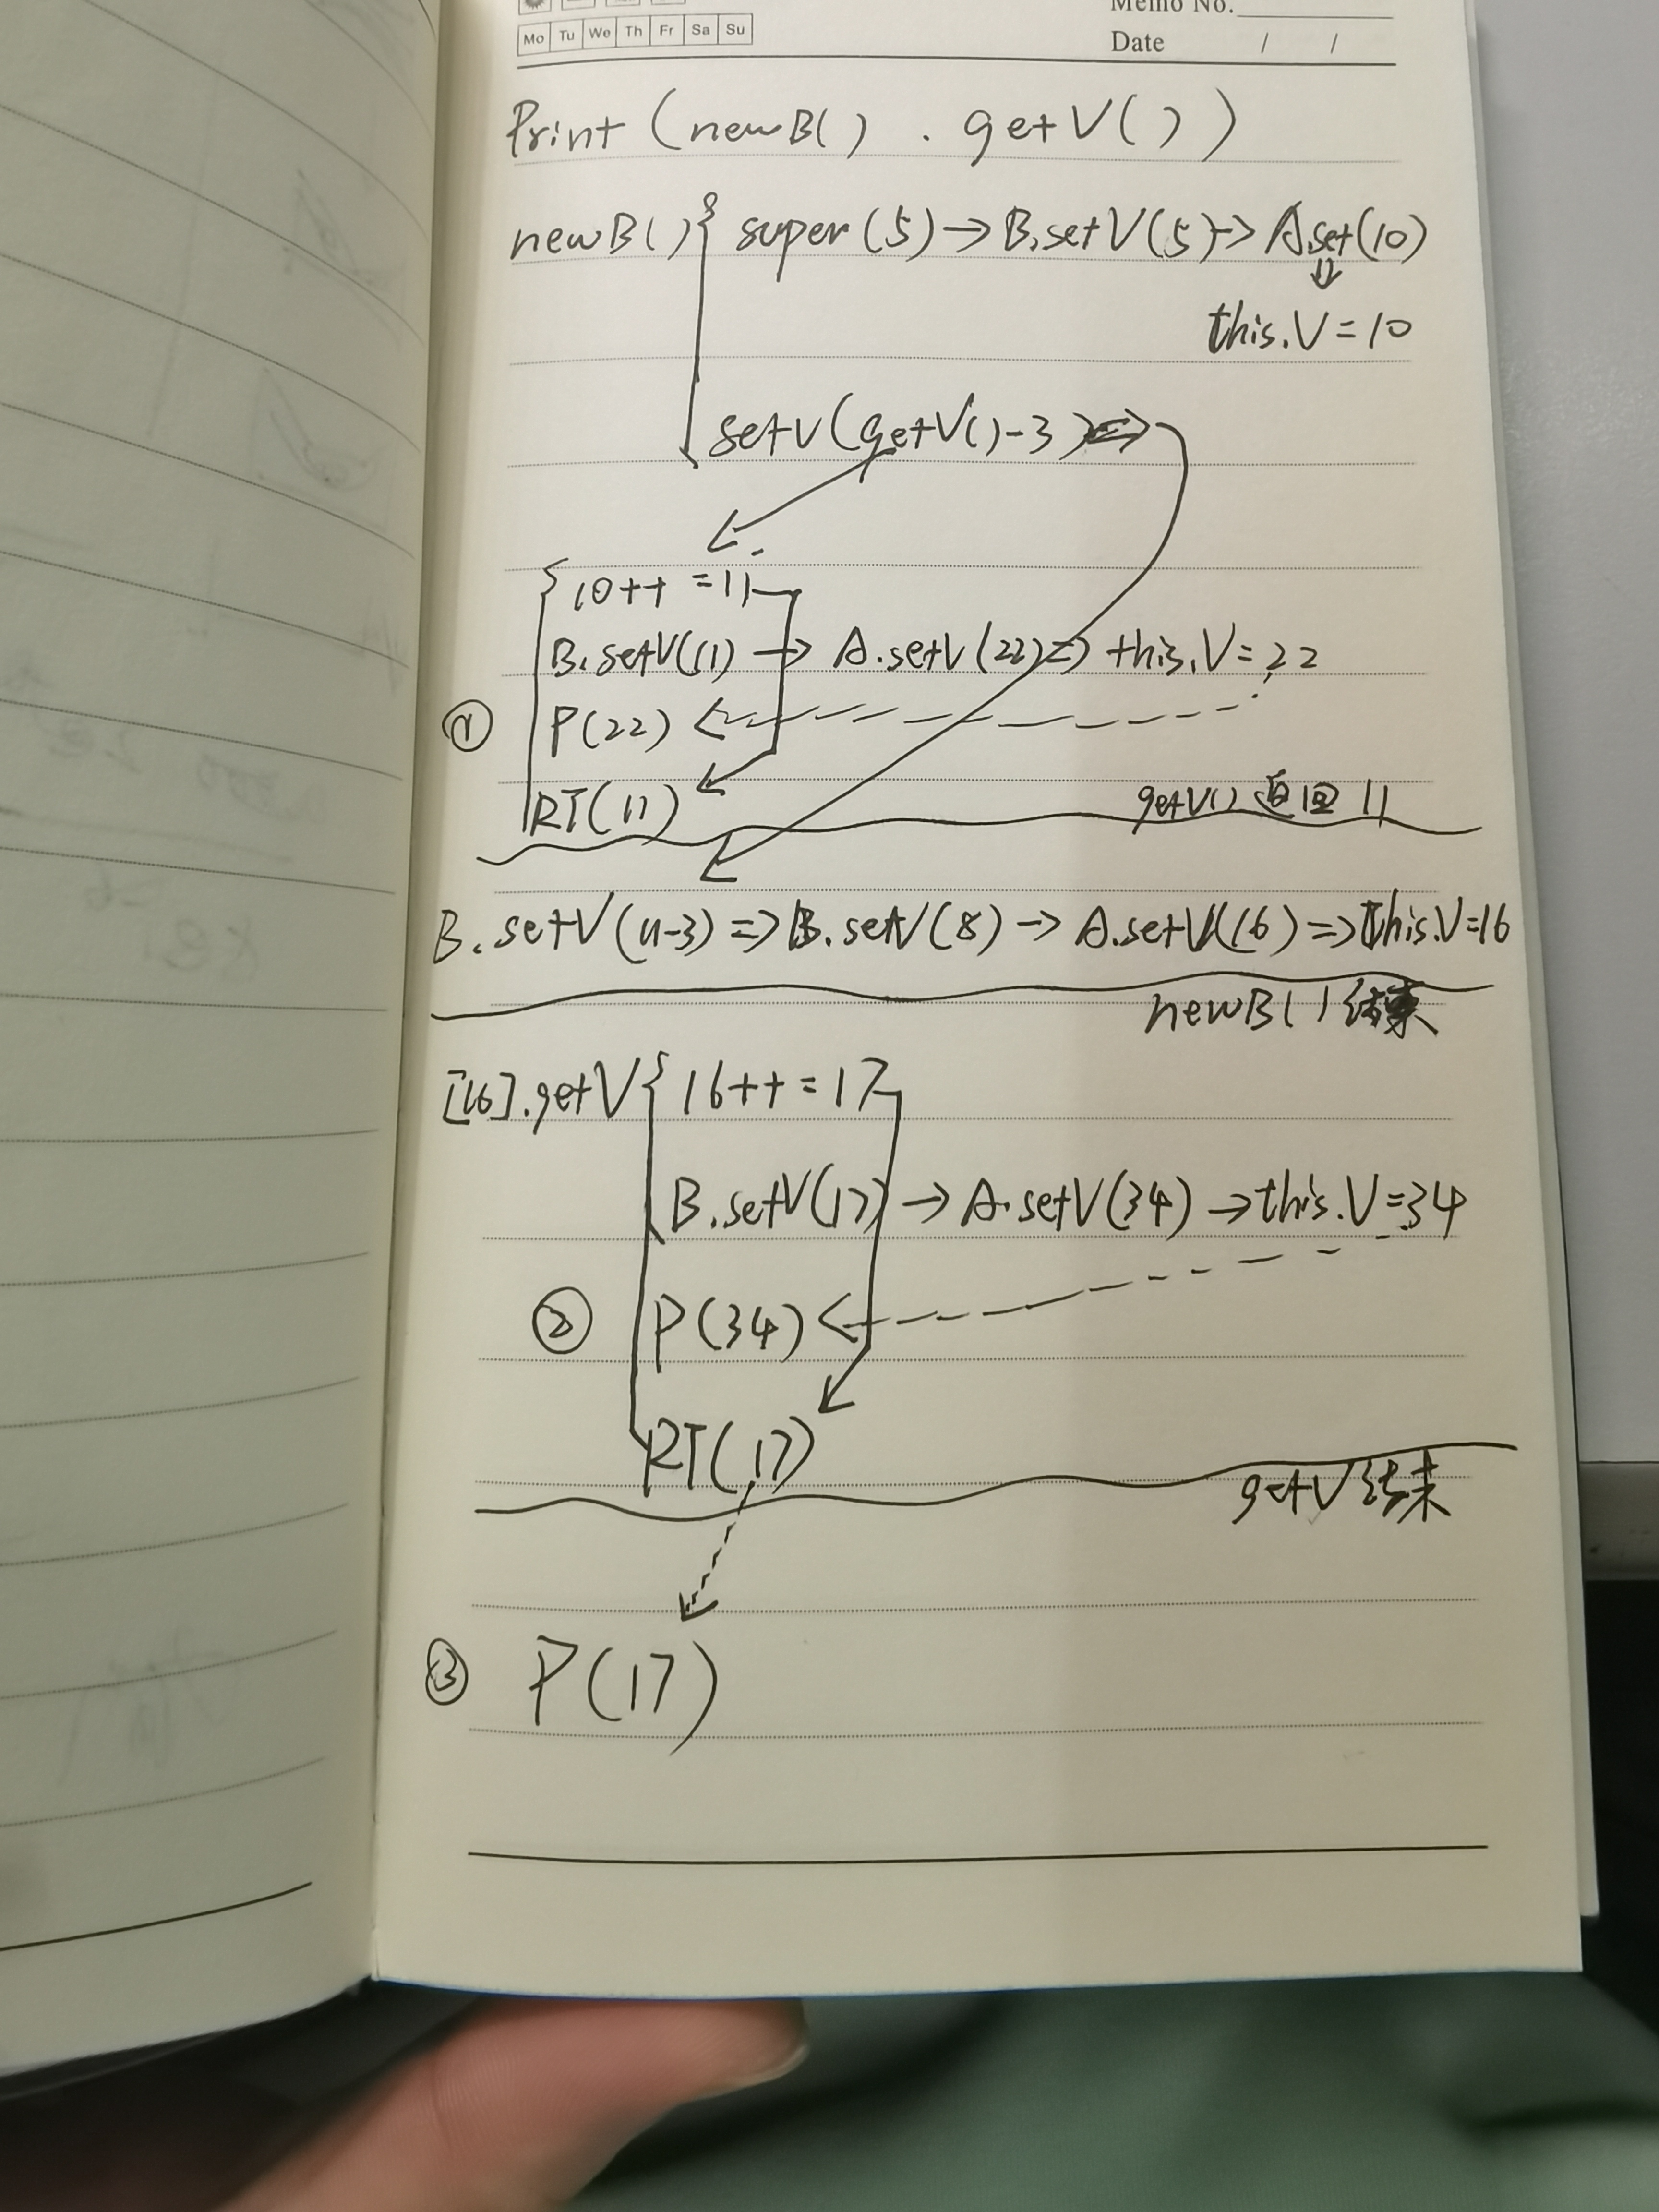 Memo No.
Mo Tu We Th Fr Sa Su
Date / /
Print (new B() . getV())
new B() { super(5) → B.setV(5) → A.set(10)
⇓
this.V = 10
setV(getV()-3) ⇒
10++ = 11
B.setV(11) → A.setV(22) ⇒ this.V = 22
① P(22)
RT(11)
getV() 返回 11
B.setV(11-3) ⇒ B.setV(8) → A.setV(16) ⇒ this.V=16
new B() 结束
[16].getV { 16++ = 17
B.setV(17) → A.setV(34) → this.V=34
② P(34)
RT(17)
getV 结束
③ P(17)